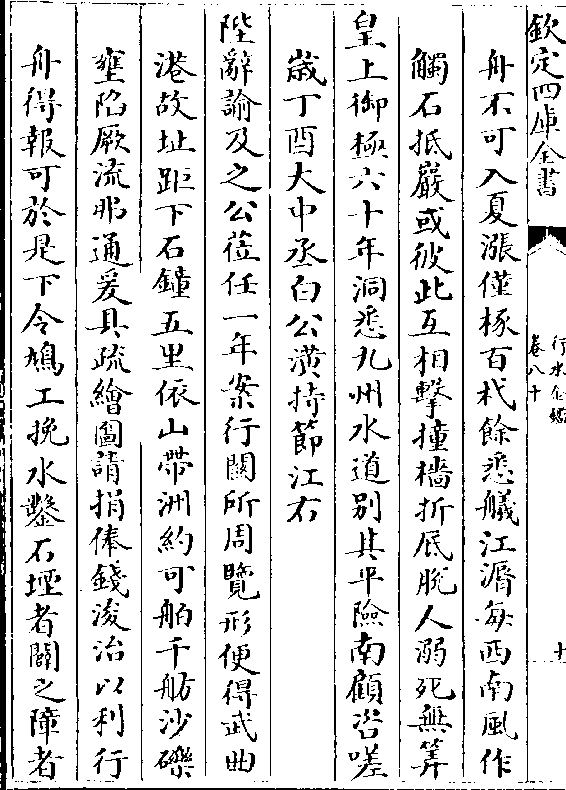 欽定四庫全書
行水金鑑
卷八十
十
舟不可入夏漲僅椓百杙餘悉艤江滣每西南風作
觸石抵巖或彼此互相擊撞檣折㞘脫人溺死無筭
皇上御極六十年洞悉九州水道别其平險南顧咨嗟
歲丁酉大中丞白公潢持節江右
陛辭諭及之公莅任一年案行關所周覽形便得武曲
港故址距下石鐘五里依山帶洲約可舶千舫沙礫
壅陷厥流弗通爰具疏繪圖請捐俸錢浚治以利行
舟得報可於是下令鳩工挽水鑿石堙者闢之障者